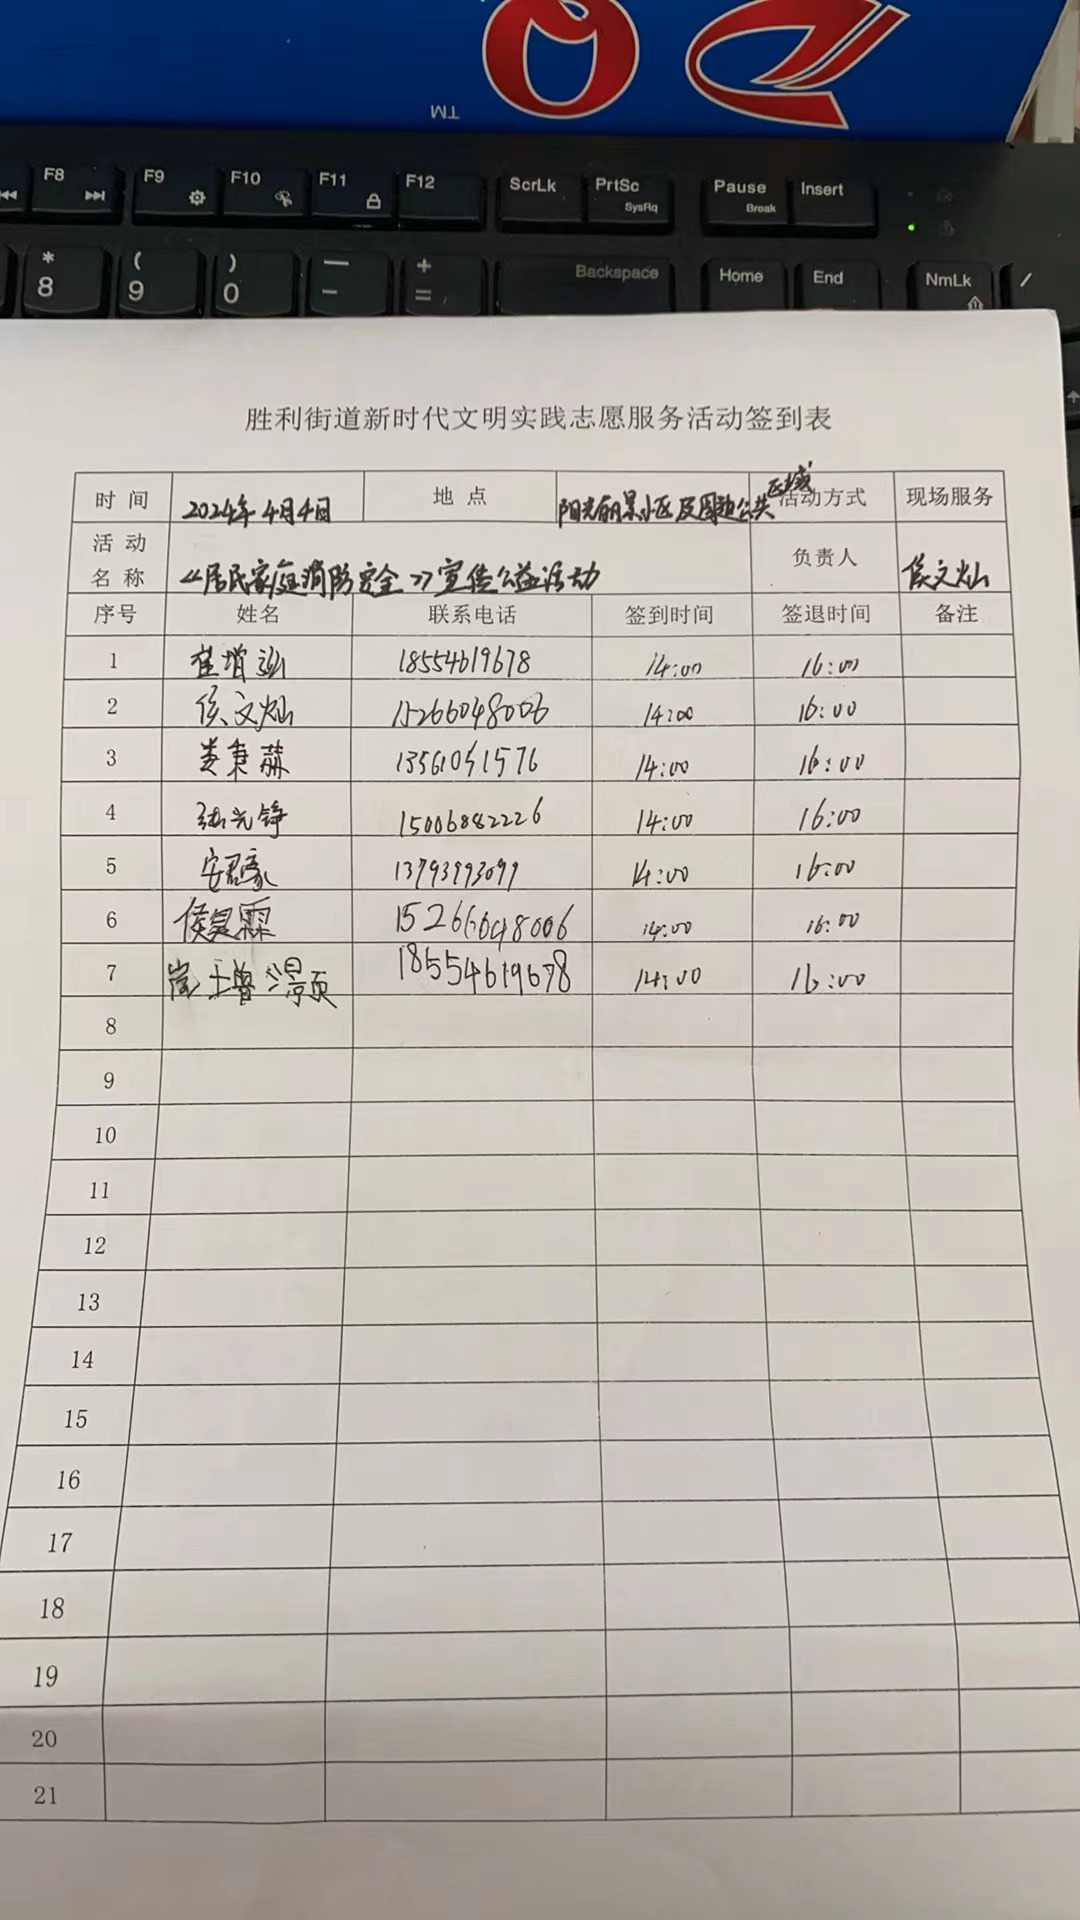 TM
F8
F9
F10
F11
F12
ScrLk
PrtSc
SysRq
Pause
Break
Insert
* 8
( 9
) 0
— -
+ =
Backspace
Home
End
NmLk
/
胜利街道新时代文明实践志愿服务活动签到表
时间 2024年4月4日 地点 阳光丽景小区及周边公共区域 活动方式 现场服务
活动名称 《居民家庭消防安全》宣传公益活动 负责人 侯文灿
序号 姓名 联系电话 签到时间 签退时间 备注
1 崔增 18554619678 14:00 16:00
2 侯文灿 15266048006 14:00 16:00
3 娄秉 13561051576 14:00 16:00
4 张光铮 15006882226 14:00 16:00
5 安君豪 13793993099 14:00 16:00
6 侯昊霖 15266048006 14:00 16:00
7 增灏 18554619678 14:00 16:00
8
9
10
11
12
13
14
15
16
17
18
19
20
21